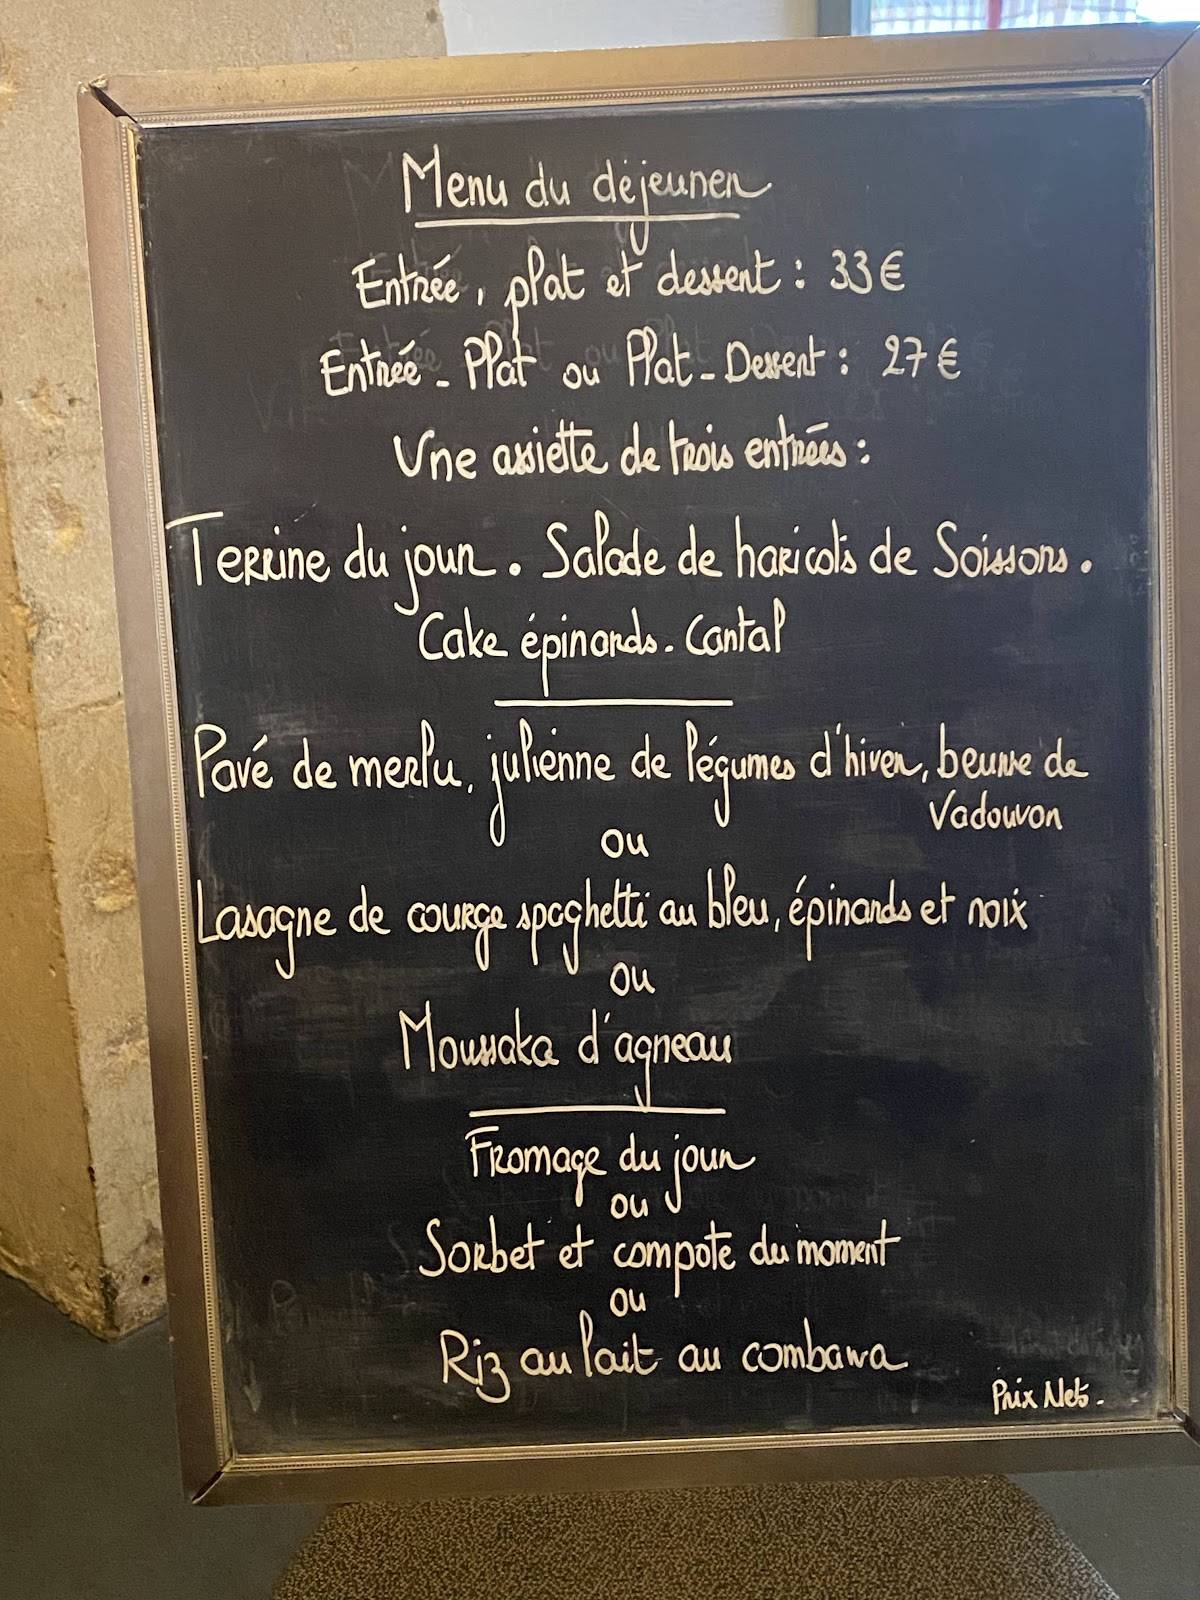 Menu du déjeuner
Entrée, plat et dessert : 33€
Entrée - Plat ou Plat - Dessert : 27€
Une assiette de trois entrées :
Terrine du jour . Salade de haricots de Soissons .
Cake épinards . Cantal
Pavé de merlu, julienne de légumes d'hiver, beurre de
Vadouvan
ou
Lasagne de courge spaghetti au bleu, épinards et noix
ou
Moussaka d'agneau
Fromage du jour
ou
Sorbet et compote du moment
ou
Riz au lait au combawa
Prix Nets .